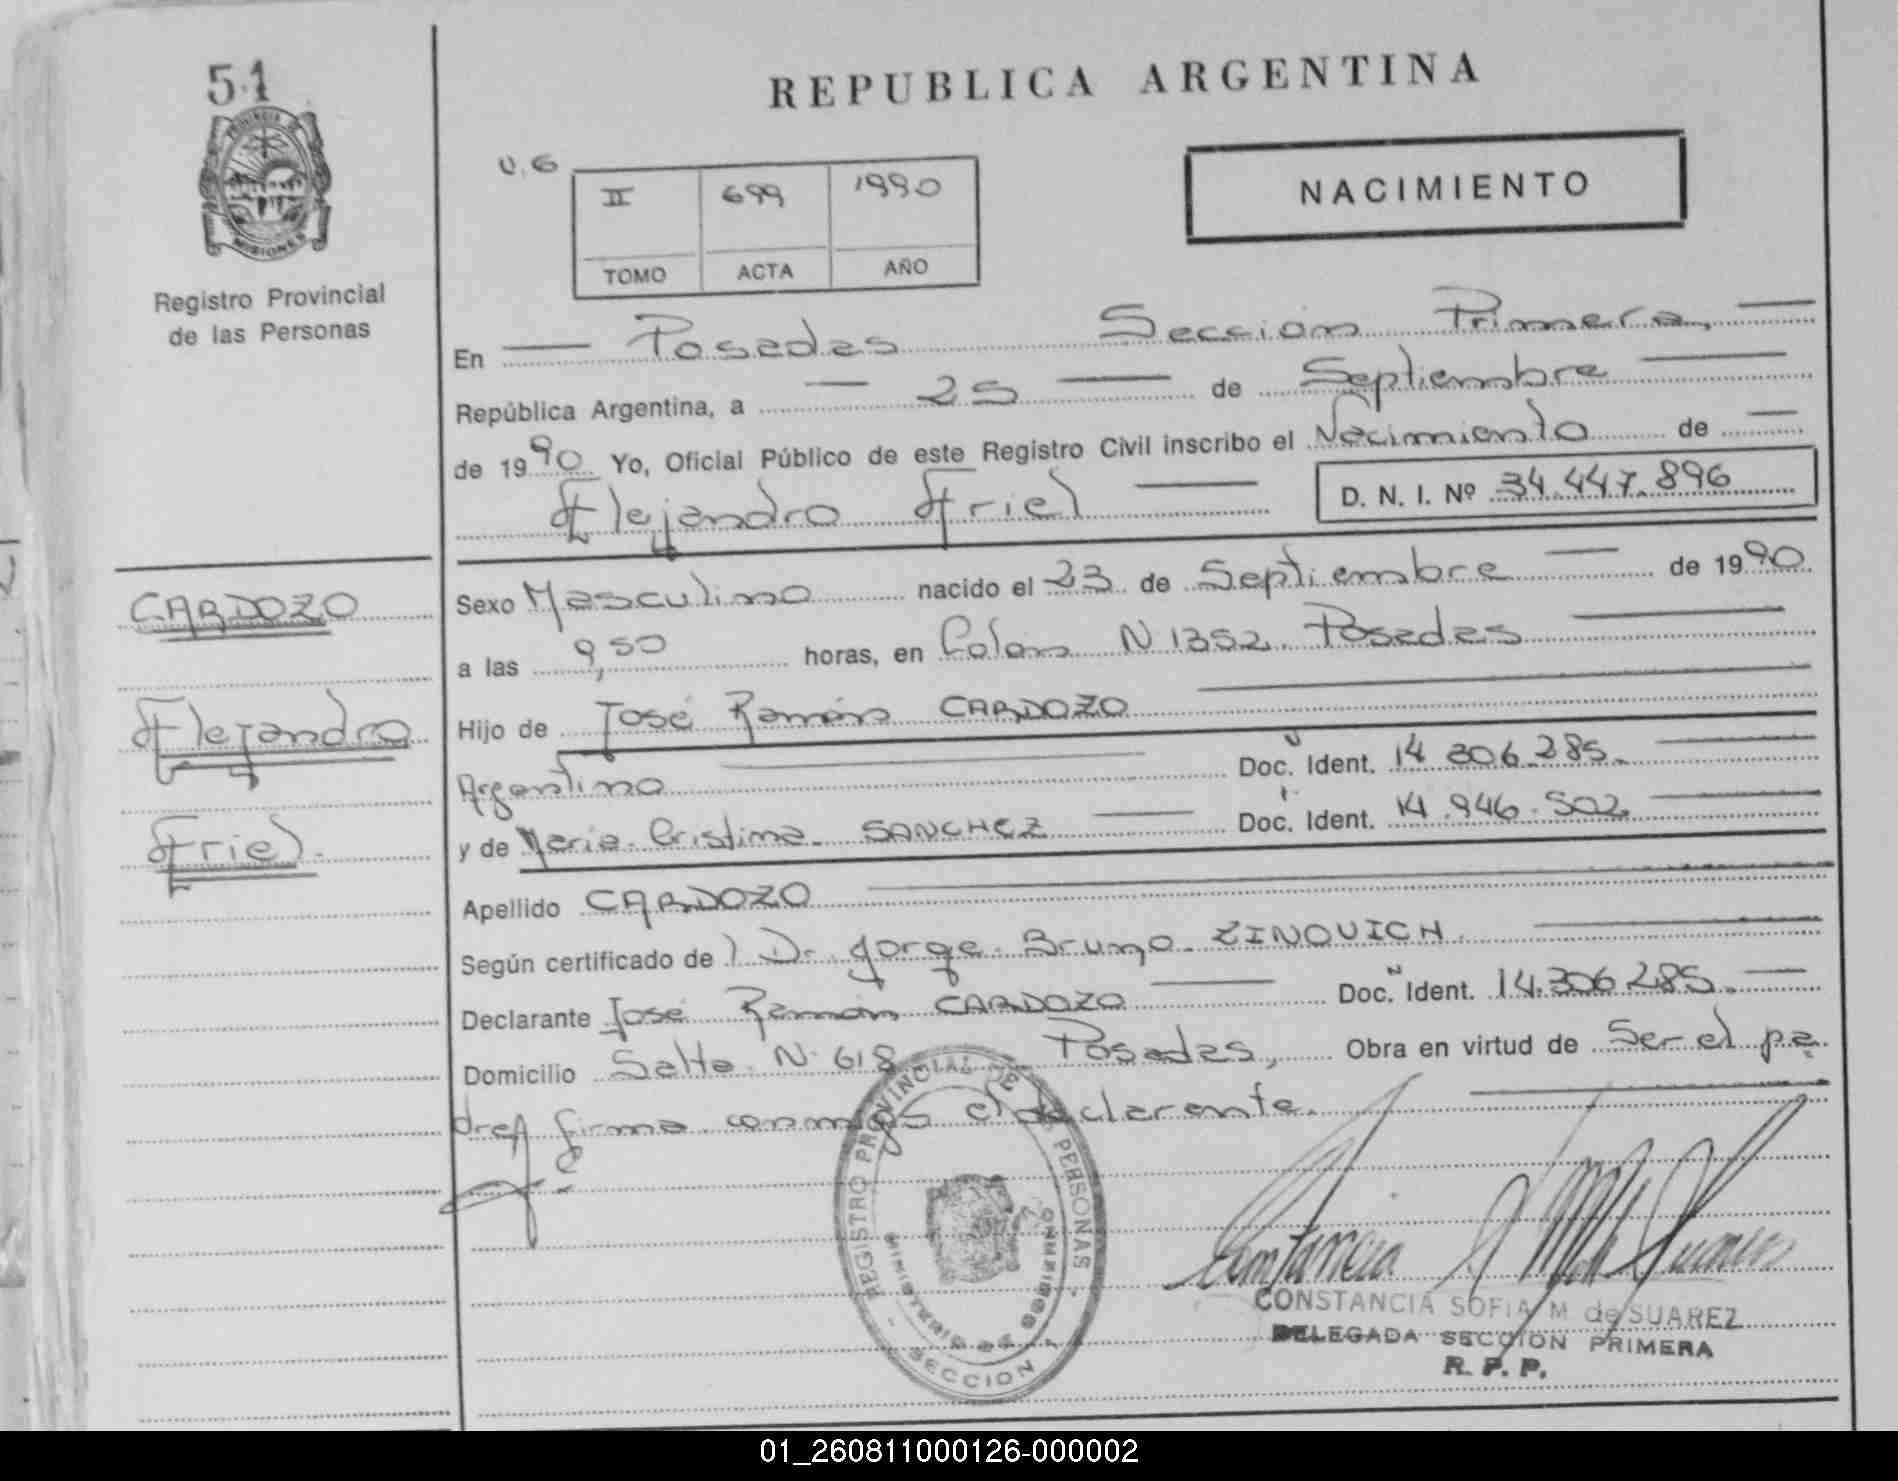 51
PROVINCIA DE
MISIONES
Registro Provincial
de las Personas
REPUBLICA ARGENTINA
V.G
II 699 1990
TOMO ACTA AÑO
NACIMIENTO
En Posadas Sección Primera,
República Argentina, a 25 de Septiembre
de 1990 Yo, Oficial Público de este Registro Civil inscribo el Nacimiento de
Alejandro Ariel D. N. I. Nº 34.447.896
CARDOZO
Alejandro
Ariel.
Sexo Masculino nacido el 23 de Septiembre de 1990
a las 9,50 horas, en Colón N 1352. Posadas
Hijo de José Ramón CARDOZO
Argentino Doc. Ident. 14 306.285.
y de María Cristina SANCHEZ Doc. Ident. 14.946.502
Apellido CARDOZO
Según certificado de Dr. Jorge Bruno ZINOVICH.
Declarante José Ramón CARDOZO Doc. Ident. 14.306.285.
Domicilio Salta N. 618 Posadas, Obra en virtud de Ser el pa
dre firma conmigo el declarante.
REGISTRO PROVINCIAL DE PERSONAS
MINISTERIO DE GOBIERNO
SECCION
CONSTANCIA SOFIA M de SUAREZ
DELEGADA SECCION PRIMERA
R. P. P.
01_260811000126-000002